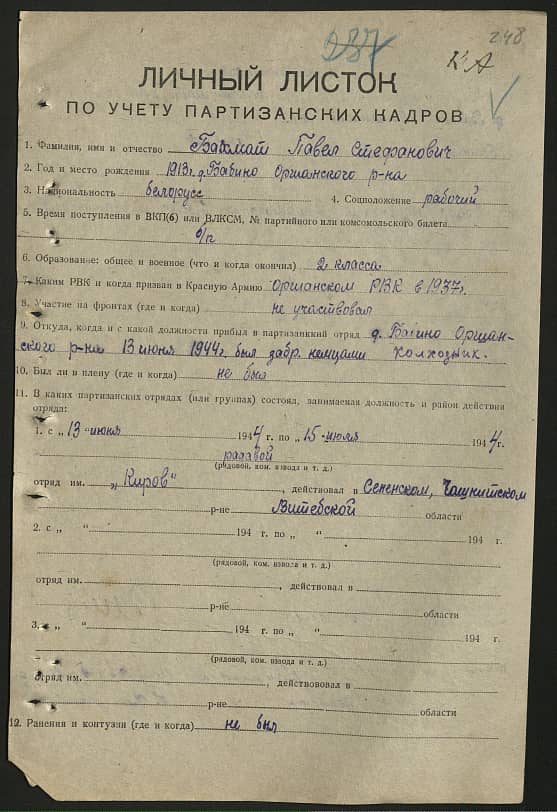 237
248
КА
ЛИЧНЫЙ ЛИСТОК
ПО УЧЕТУ ПАРТИЗАНСКИХ КАДРОВ
1. Фамилия, имя и отчество Павел Стефанович
2. Год и место рождения 1913 г. д. Бабино Оршанского р-на
3. Национальность белорусс 4. Соцположение рабочий
5. Время поступления в ВКП(б) или ВЛКСМ, № партийного или комсомольского билета
б/п
6. Образование: общее и военное (что и когда окончил) 2 класса
7. Каким РВК и когда призван в Красную Армию Оршанском РВК в 1937 г.
8. Участие на фронтах (где и когда) не участвовал
9. Откуда, когда и с какой должности прибыл в партизанский отряд д. Бабино Оршан-
ского р-на 13 июня 1944 г. был забр. немцами колхозник.
10. Был ли в плену (где и когда) не был
11. В каких партизанских отрядах (или группах) состоял, занимаемая должность и район действия
отряда:
1. с „13 " июня 1944 г. по „15 - июля 1944 г.
радавой
(рядовой, ком. взвода и т. д.)
отряд им. „Киров" , действовал в Сененском,
р-не Витебской области
2. с „ " 194 г. по „ " 194 г.
(рядовой, ком. взвода и т. д.)
отряд им. , действовал в
р-не области
3. с „ " 194 г. по „ " 194 г.
(рядовой, ком. взвода и т. д.)
отряд им. , действововал в
р-не области
12. Ранения и контузия (где и когда) не был